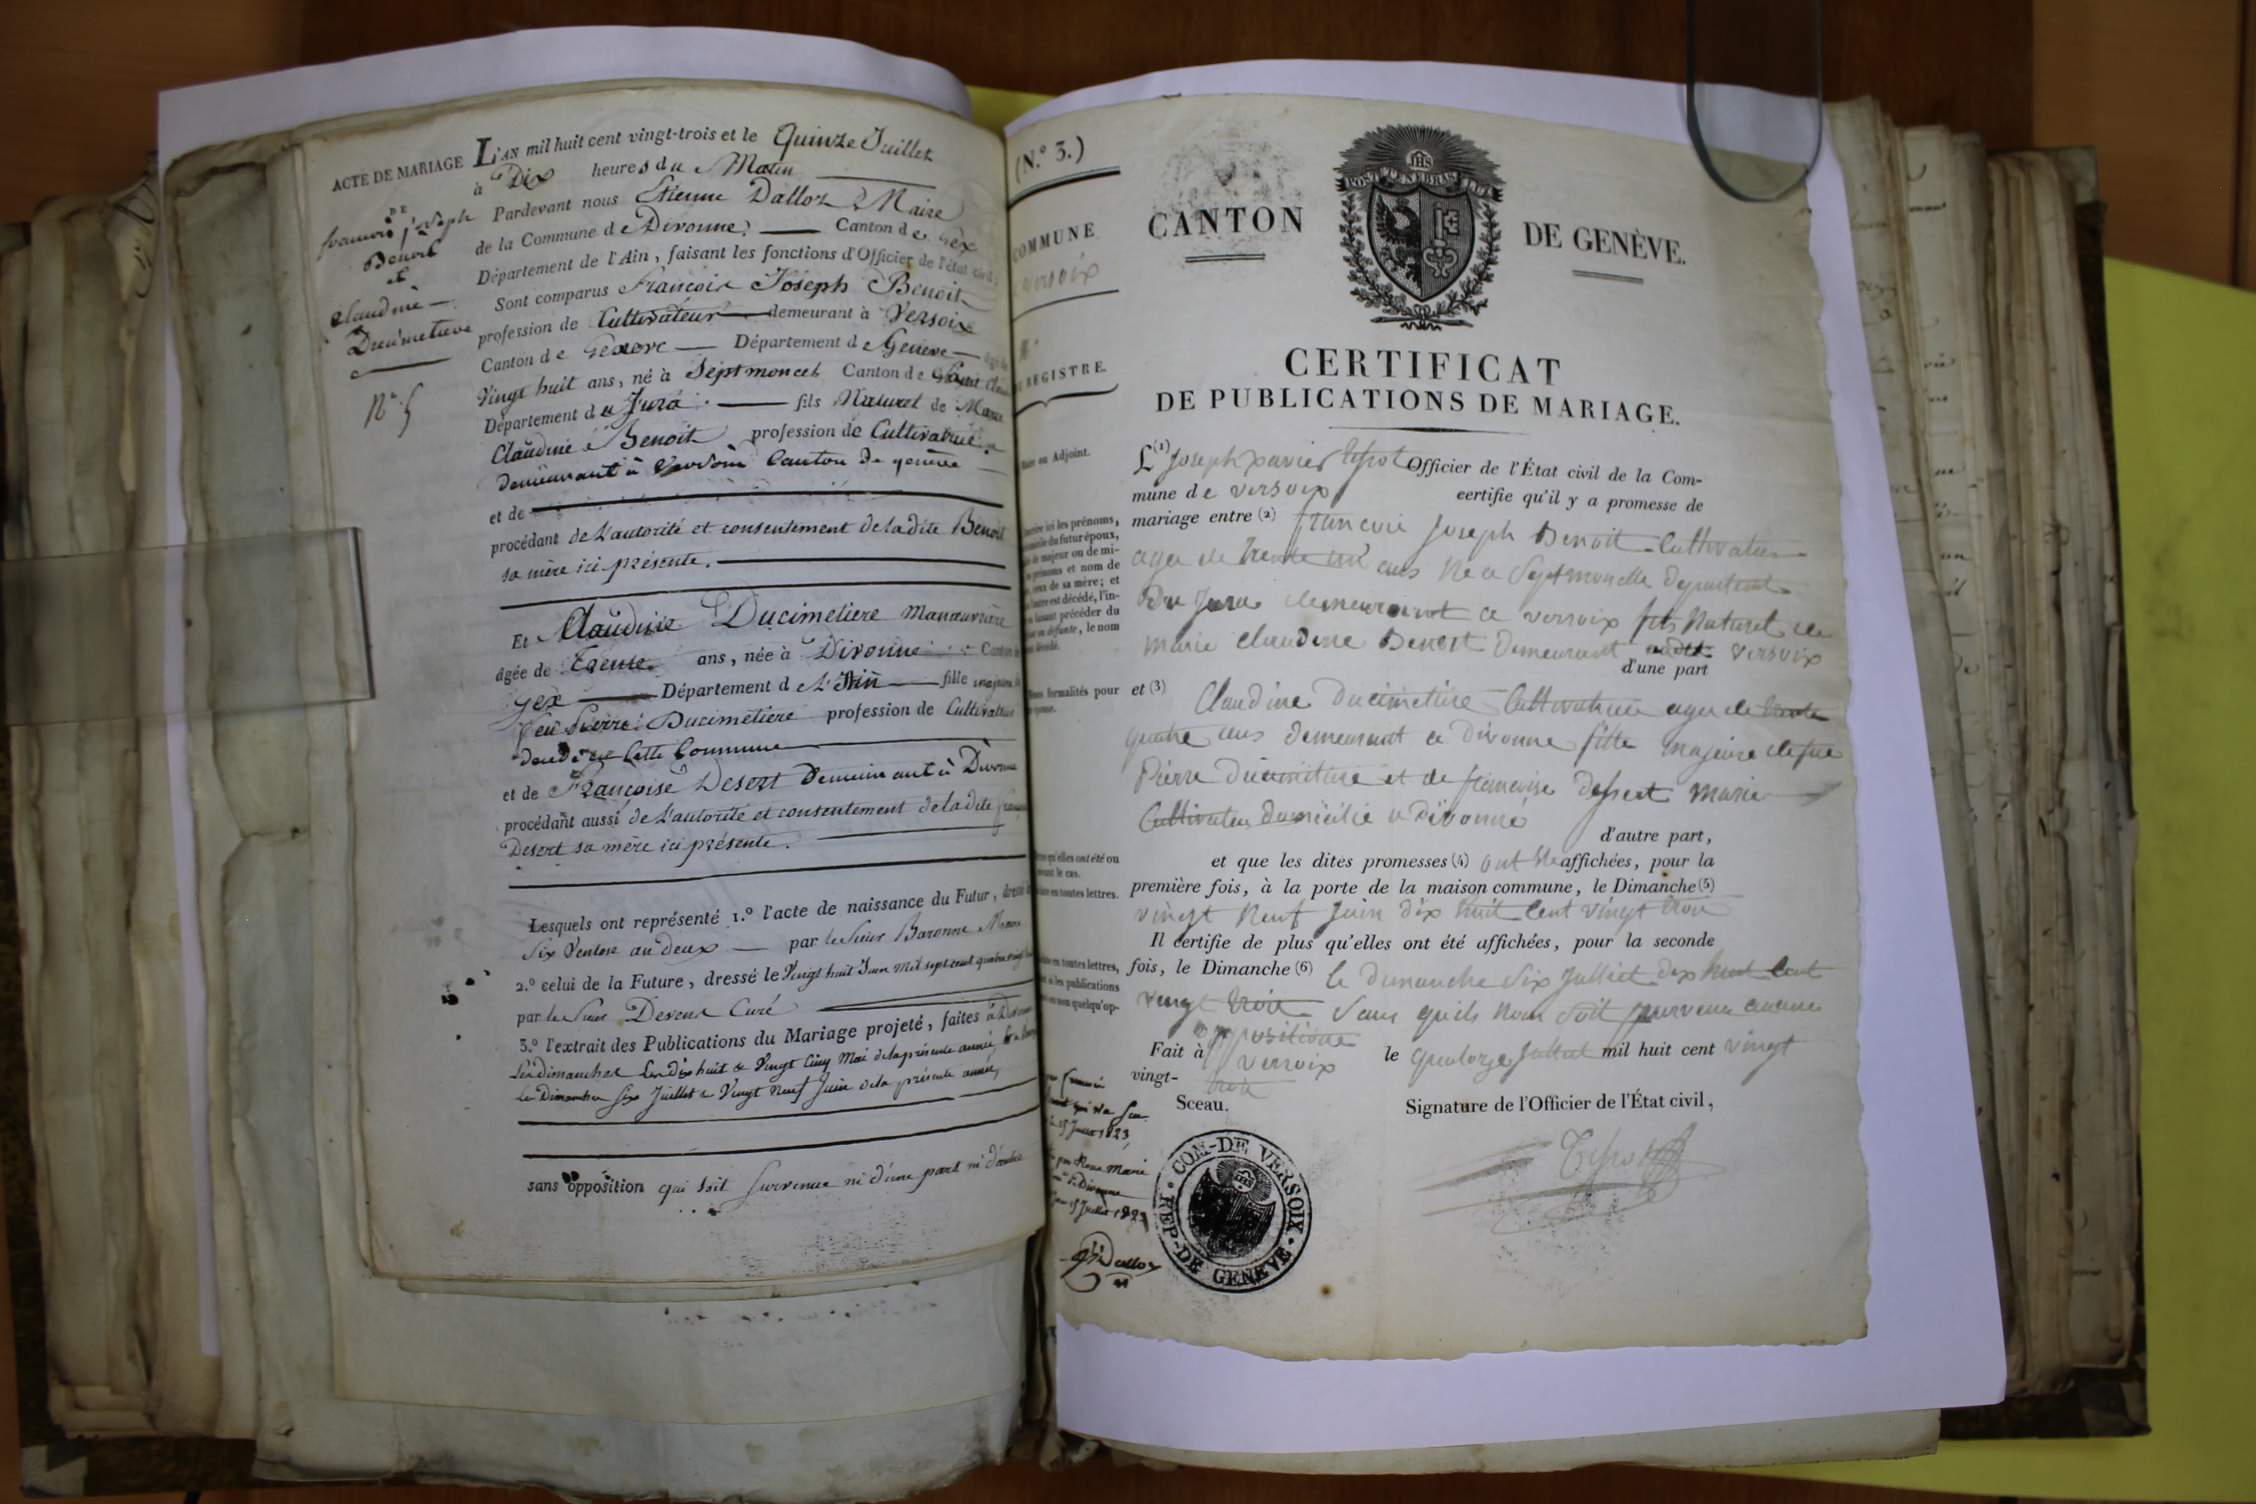 ACTE DE MARIAGE
DE
francois joseph
Benoit
et
Claudine
Ducimetiere
N.° 5
L'AN mil huit cent vingt-trois et le Quinze Juillet
à Dix heures du Matin
Pardevant nous Etienne Dalloz Maire
de la Commune de Divonne Canton de Gex
Département de l'Ain, faisant les fonctions d'Officier de l'état civil
Sont comparus François Joseph Benoit
profession de Cultivateur demeurant à Versoix
Canton de Geneve Département de Geneve âgé de
Vingt huit ans, né à Septmoncel Canton de Saint
Département du Jura fils Naturel de Marie
Claudine Benoit profession de Cultivatrice
demeurant à Versoix Canton de genève
et de
procédant de l'autorité et consentement de la dite Benoit
sa mère ici présente.
Et Claudine Ducimetiere Manoeuvrière
âgée de Trente ans, née à Divonne Canton de
Gex Département de L'Ain fille majeure de
feu Pierre Ducimetiere profession de Cultivateur
Cette Commune
et de Françoise Desert demeurant à Divonne
procédant aussi de l'autorité et consentement de la dite françoise
Desert sa mère ici présente.
Lesquels ont représenté 1.° l'acte de naissance du Futur, dressé le
Six Ventose an deux par le Sieur Baronne
2.° celui de la Future, dressé le Vingt huit Juin mil sept cent quatre vingt
par le Sieur Devens Curé
3.° l'extrait des Publications du Mariage projeté, faites à Divonne
Les dimanches Les dix huit & Vingt Cinq Mai de la présente année,
les Dimanches Six Juillet & Vingt Neuf Juin de la présente année,
sans opposition qui soit survenue ni d'une part ni d'autre
(N.° 3.)
COMMUNE
Versoix
N.°
REGISTRE.
Maire ou Adjoint.
CANTON DE GENÈVE.
POST TENEBRAS LUX
IHS
CERTIFICAT
DE PUBLICATIONS DE MARIAGE.
L (1) Joseph xavier Officier de l'État civil de la Com-
mune de versoix certifie qu'il y a promesse de
mariage entre (2) francois Joseph Benoit Cultivateur
ager de trente un ans Ne a Septmoncelle departement
Du Jura demeurant a versoix fils Naturel de
marie claudine Benoit demeurant versoix
d'une part
et (3) Claudine Ducimetiere Cultivatrice ager de trente
quatre ans demeurant a divonne fille majeure de feu
Pierre Ducimetiere et de francoise dessert marie
Cultivateu domicilié a Divonne
d'autre part,
et que les dites promesses (4) ont été affichées, pour la
première fois, à la porte de la maison commune, le Dimanche (5)
vingt Neuf Juin dix huit Cent vingt trois
Il certifie de plus qu'elles ont été affichées, pour la seconde
fois, le Dimanche (6) le dimanche Six Julliet dix huit Cent
vingt trois Sans qu'ils Nous soit parvenu aucune
oppositione
Fait à versoix le quatorze Julliet mil huit cent vingt
vingt- trois
Sceau.
Signature de l'Officier de l'État civil,
15 Juillet 1823
15 Juillet 1823
Dalloz
COM-DE VERSOIX
REP-DE GENEVE